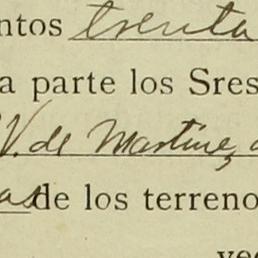 ntos trenta
a parte los Sres
V. de Martinez
as de los terreno
vec